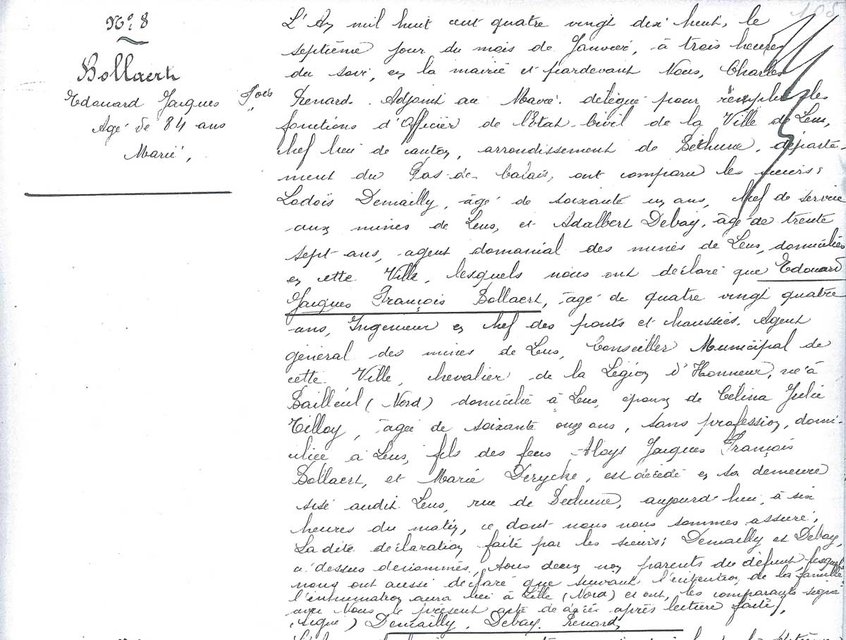 N° 8
Bollaert
Edouard Jacques Fois
Agé de 84 ans
Marié,
L'An mil huit cent quatre vingt dix huit, le
septième jour du mois de Janvier, à trois heures
du soir, en la mairie et pardevant Nous, Charles
Renard. Adjoint au Maire. délégué pour remplir les
fonctions d'Officier de l'Etat-Civil de la Ville de Lens,
chef lieu de canton, arrondissement de Béthune, départe-
ment du Pas-de-Calais, ont comparu les sieurs:
Lodoïs Demailly, âgé de soixante un ans, chef de service
aux mines de Lens, et Adalbert Debay, âgé de trente
sept ans, agent domanial des mines de Lens, domiciliés
en cette Ville, lesquels nous ont déclaré que Edouard
Jacques François Bollaert, âgé de quatre vingt quatre
ans, Ingénieur en chef des ponts et chaussées. Agent
général des mines de Lens, Conseiller Municipal de
cette Ville, chevalier de la Légion d'Honneur, né à
Bailleul (Nord) domicilié à Lens, époux de Célina Julie
Tilloy, âgée de soixante onze ans, sans profession, domi-
ciliée à Lens, fils des feus Aloys Jacques François
Bollaert, et Marie Deryche, est décédé en sa demeure
sise audit Lens, rue de Béthune, aujourd'hui, à six
heures du matin, ce dont nous nous sommes assuré;
La dite déclaration faite par les sieurs; Demailly et Debay,
ci dessus dénommés, tous deux non parents du défunt, lesquels
nous ont aussi déclaré que suivant l'intention de la famille
l'inhumation aura lieu à Lille (Nord) et ont, les comparants signé
avec Nous le présent acte de décès après lecture faite,
(Signé) Demailly, Debay, Renard,